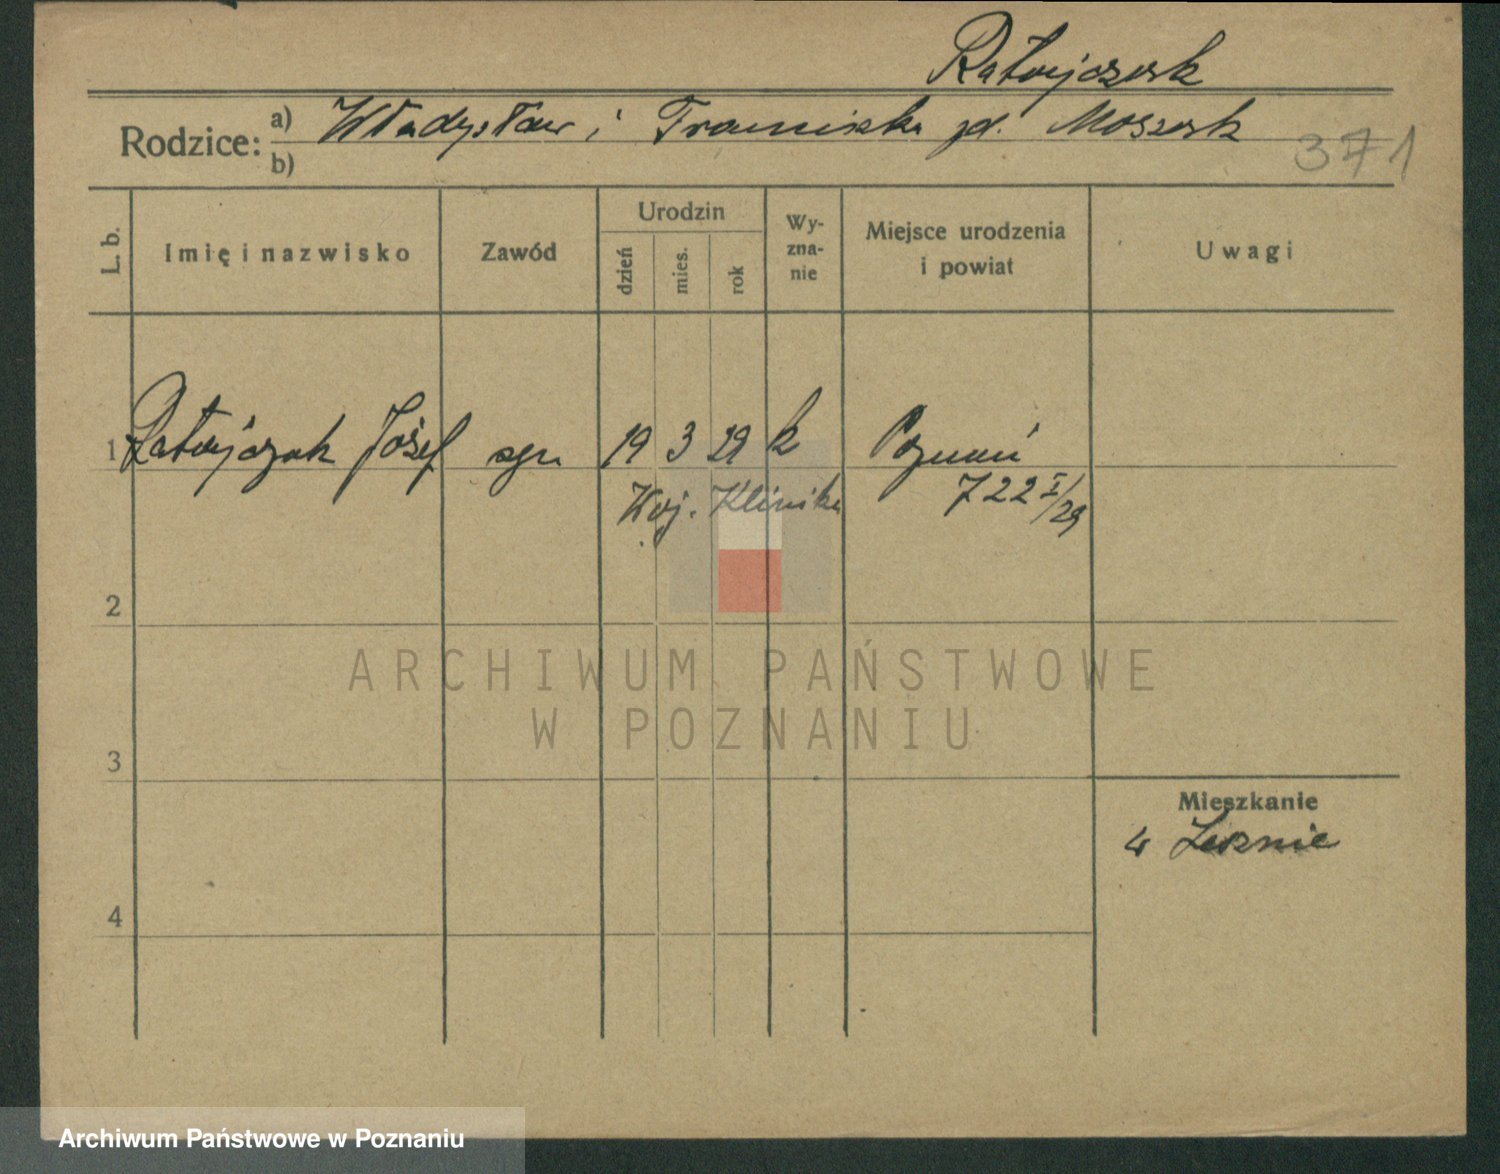 Ratajczak
Rodzice:
a) Władysław i Franciszka zd.
b)
371
L. b.
Imię i nazwisko
Zawód
Urodzin
dzień
mies.
rok
Wy-
zna-
nie
Miejsce urodzenia
i powiat
Uwagi
1 Ratajczak Józef syn 19 3 29 k Poznań
Woj. Klinika 722 I/29
2
ARCHIWUM PAŃSTWOWE
W POZNANIU
3
Mieszkanie
w Lesznie
4
Archiwum Państwowe w Poznaniu